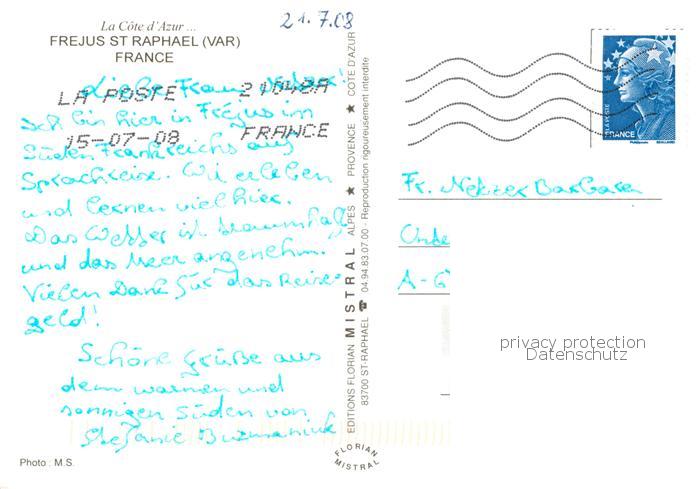 21.7.08
La Côte d'Azur ...
FREJUS ST RAPHAEL (VAR)
FRANCE
Liebe Frau
LA POSTE 21048A
Ich bin hier in Frejus im
15-07-08 FRANCE
Süden Frankreichs auf
Sprachreise. Wir erleben
und lernen viel hier.
Das Wetter ist traumhaft
und das Meer angenehm.
Vielen Dank für das Reise-
geld!
Schöne Grüße aus
dem warmen und
sonnigen Süden von
Stefanie
Photo : M.S.
EDITIONS FLORIAN MISTRAL ALPES ★ PROVENCE ★ COTE D'AZUR
83700 ST-RAPHAEL ☎ 04.94.83.07.00 - Reproduction rigoureusement interdite
FLORIAN
MISTRAL
LA POSTE
FRANCE
Fr. Netzer Barbara
A-6
privacy protection
Datenschutz